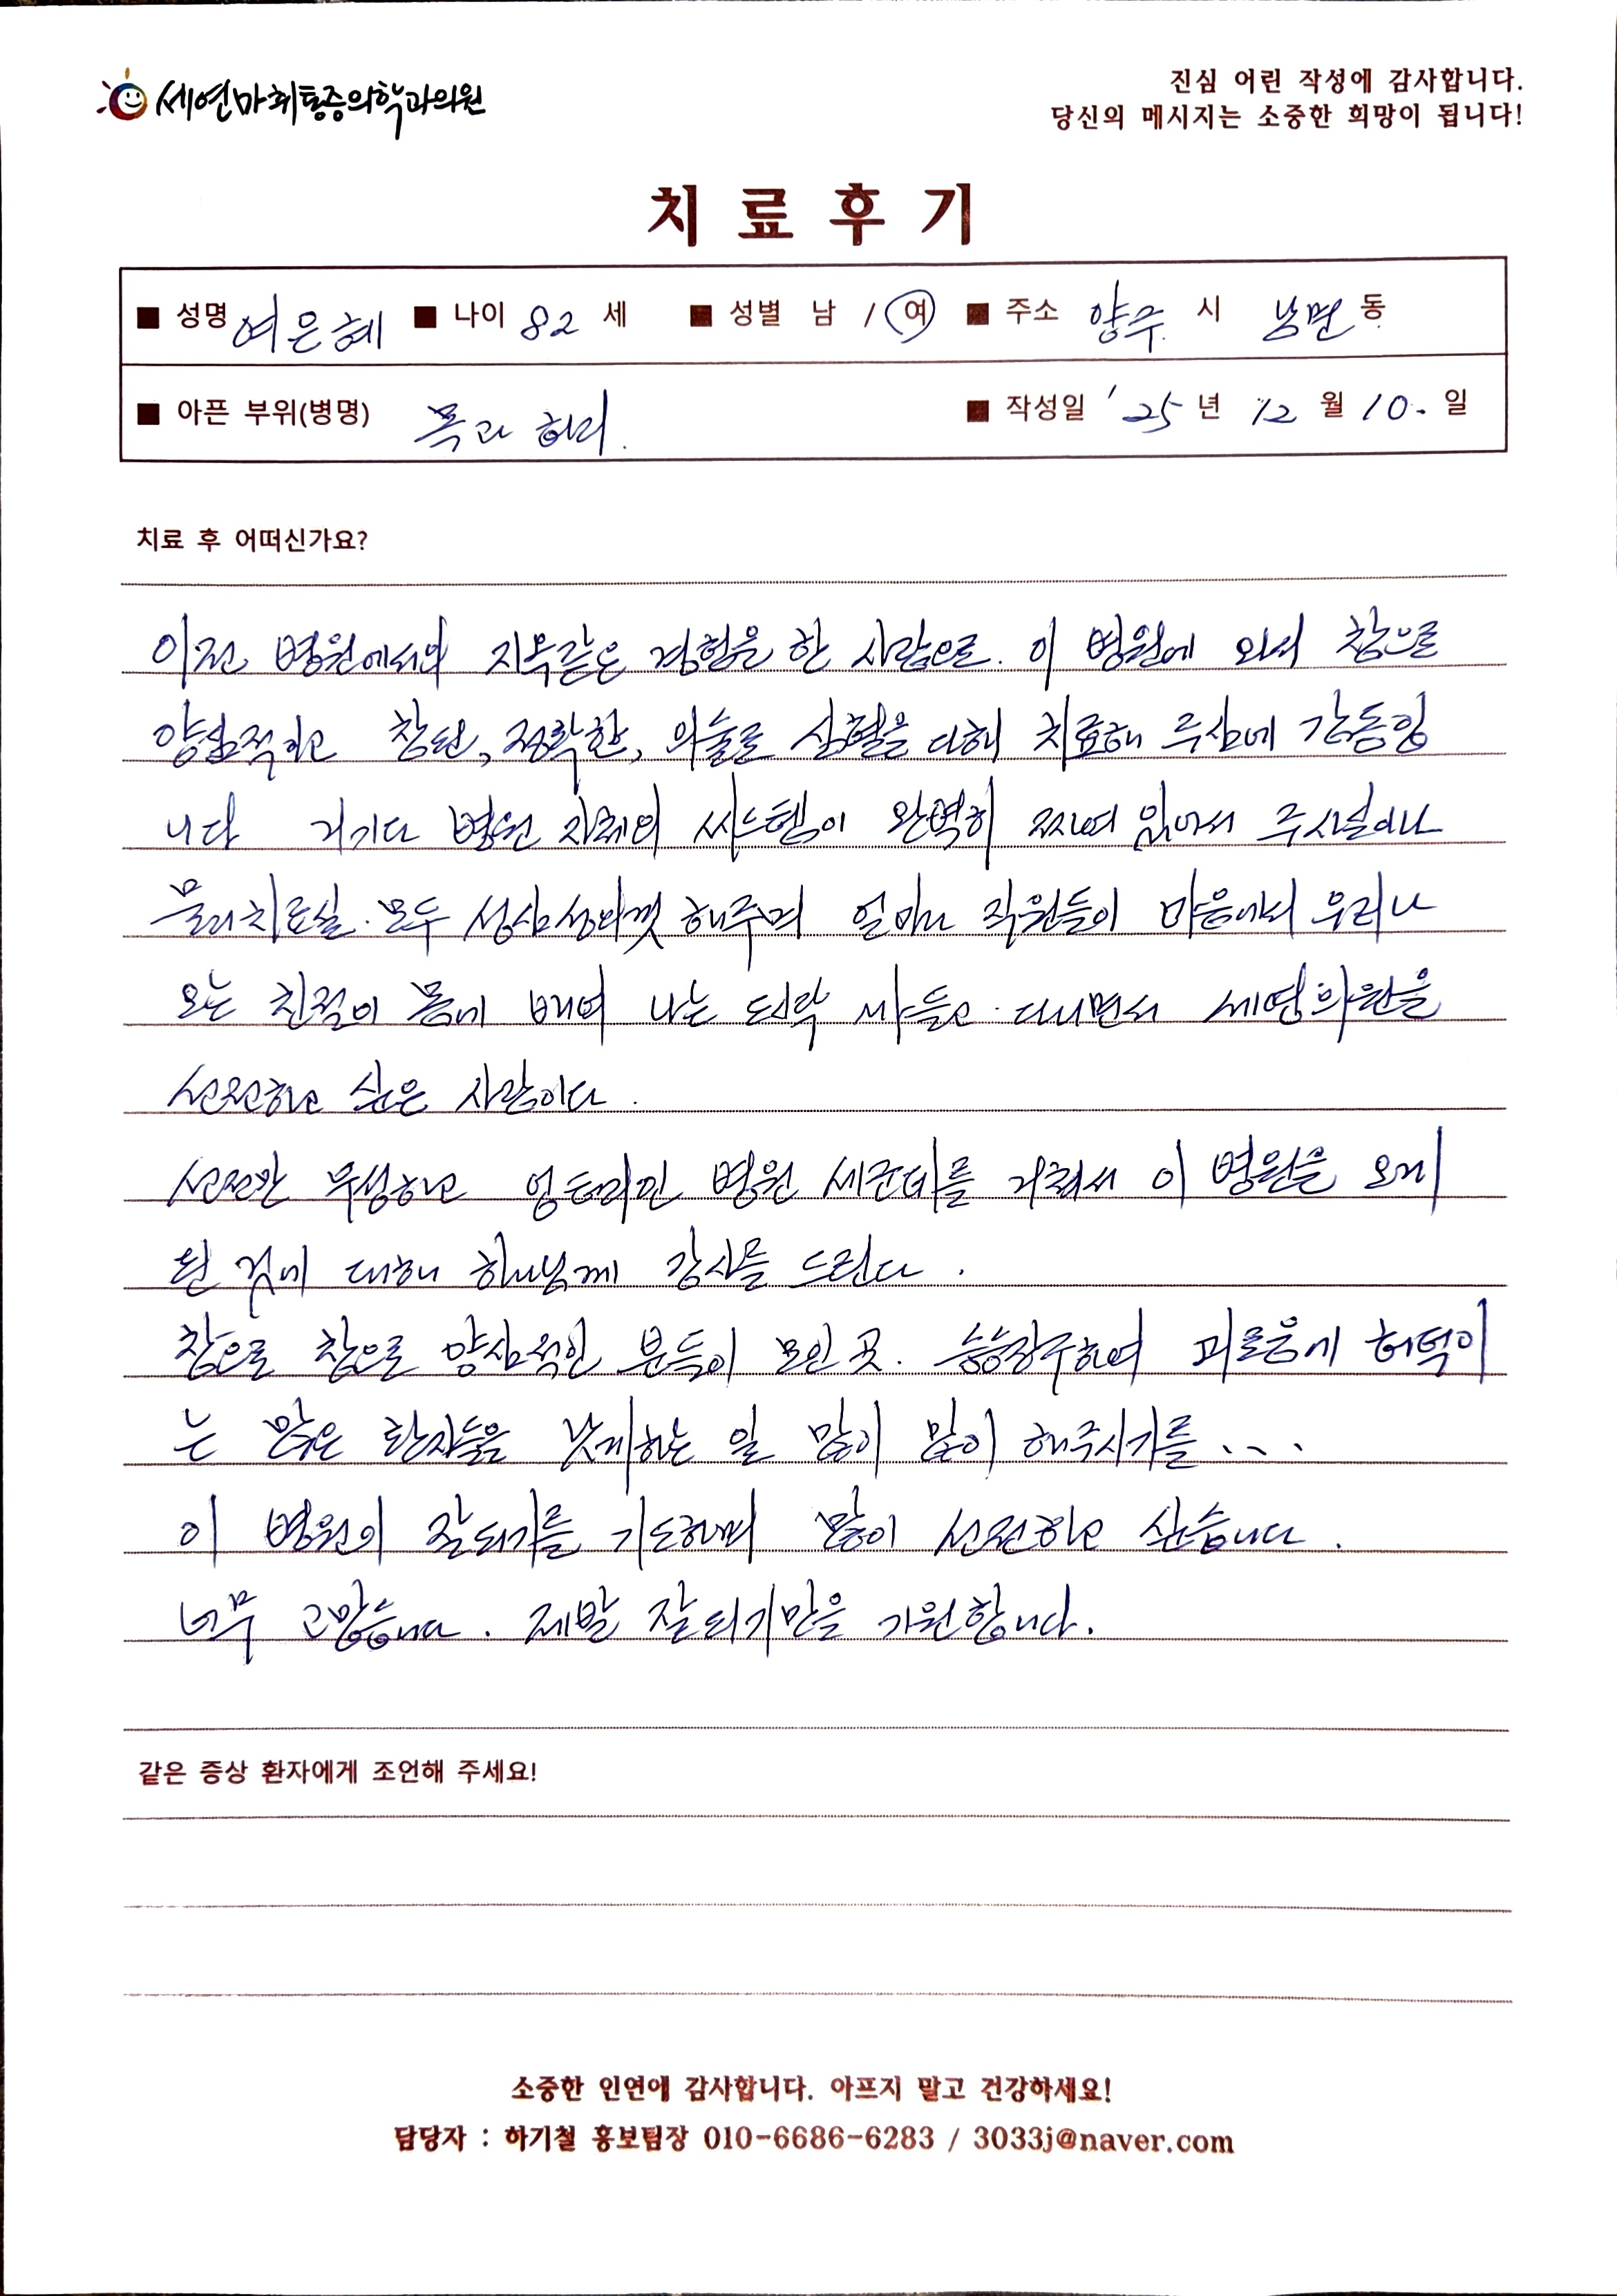 세연마취통증의학과의원
진심 어린 작성에 감사합니다.
당신의 메시지는 소중한 희망이 됩니다!
치료후기
■ 성명 여은혜 ■ 나이 82 세 ■ 성별 남 / 여 ■ 주소 양주 시 남면 동
■ 아픈 부위(병명) 목과 허리. ■ 작성일 '25년 12월 10. 일
치료 후 어떠신가요?
이전 병원에서의 지옥같은 경험을 한 사람으로. 이 병원에 와서 참으로
양심적하고 참된, 정확한, 의술로 심혈을 다해 치료해 주심에 감동입
니다 거기다 병원 자체의 씨스템이 완벽히 짜여 있어서 주사실이나
물리치료실. 모두 성심성의껏 해주며 얼마나 직원들이 마음에서 우러나
오는 친절이 몸에 배여 나는 도시락 싸들고 다니면서 세연의원을
선전하고 싶은 사람이다.
선전만 무성하고 엉터리인 병원 세군데를 거쳐서 이 병원을 오게
된 것에 대해 하나님께 감사를 드린다.
참으로 참으로 양심적인 분들이 모인 곳. 승승장구하여 괴로움에 허덕이
는 많은 환자들을 낫게하는 일 많이 많이 해주시기를...
이 병원이 잘되기를 기도하며 많이 선전하고 싶습니다.
너무 고맙습니다. 제발 잘되기만을 기원합니다.
같은 증상 환자에게 조언해 주세요!
소중한 인연에 감사합니다. 아프지 말고 건강하세요!
담당자 : 하기철 홍보팀장 010-6686-6283 / 3033j@naver.com